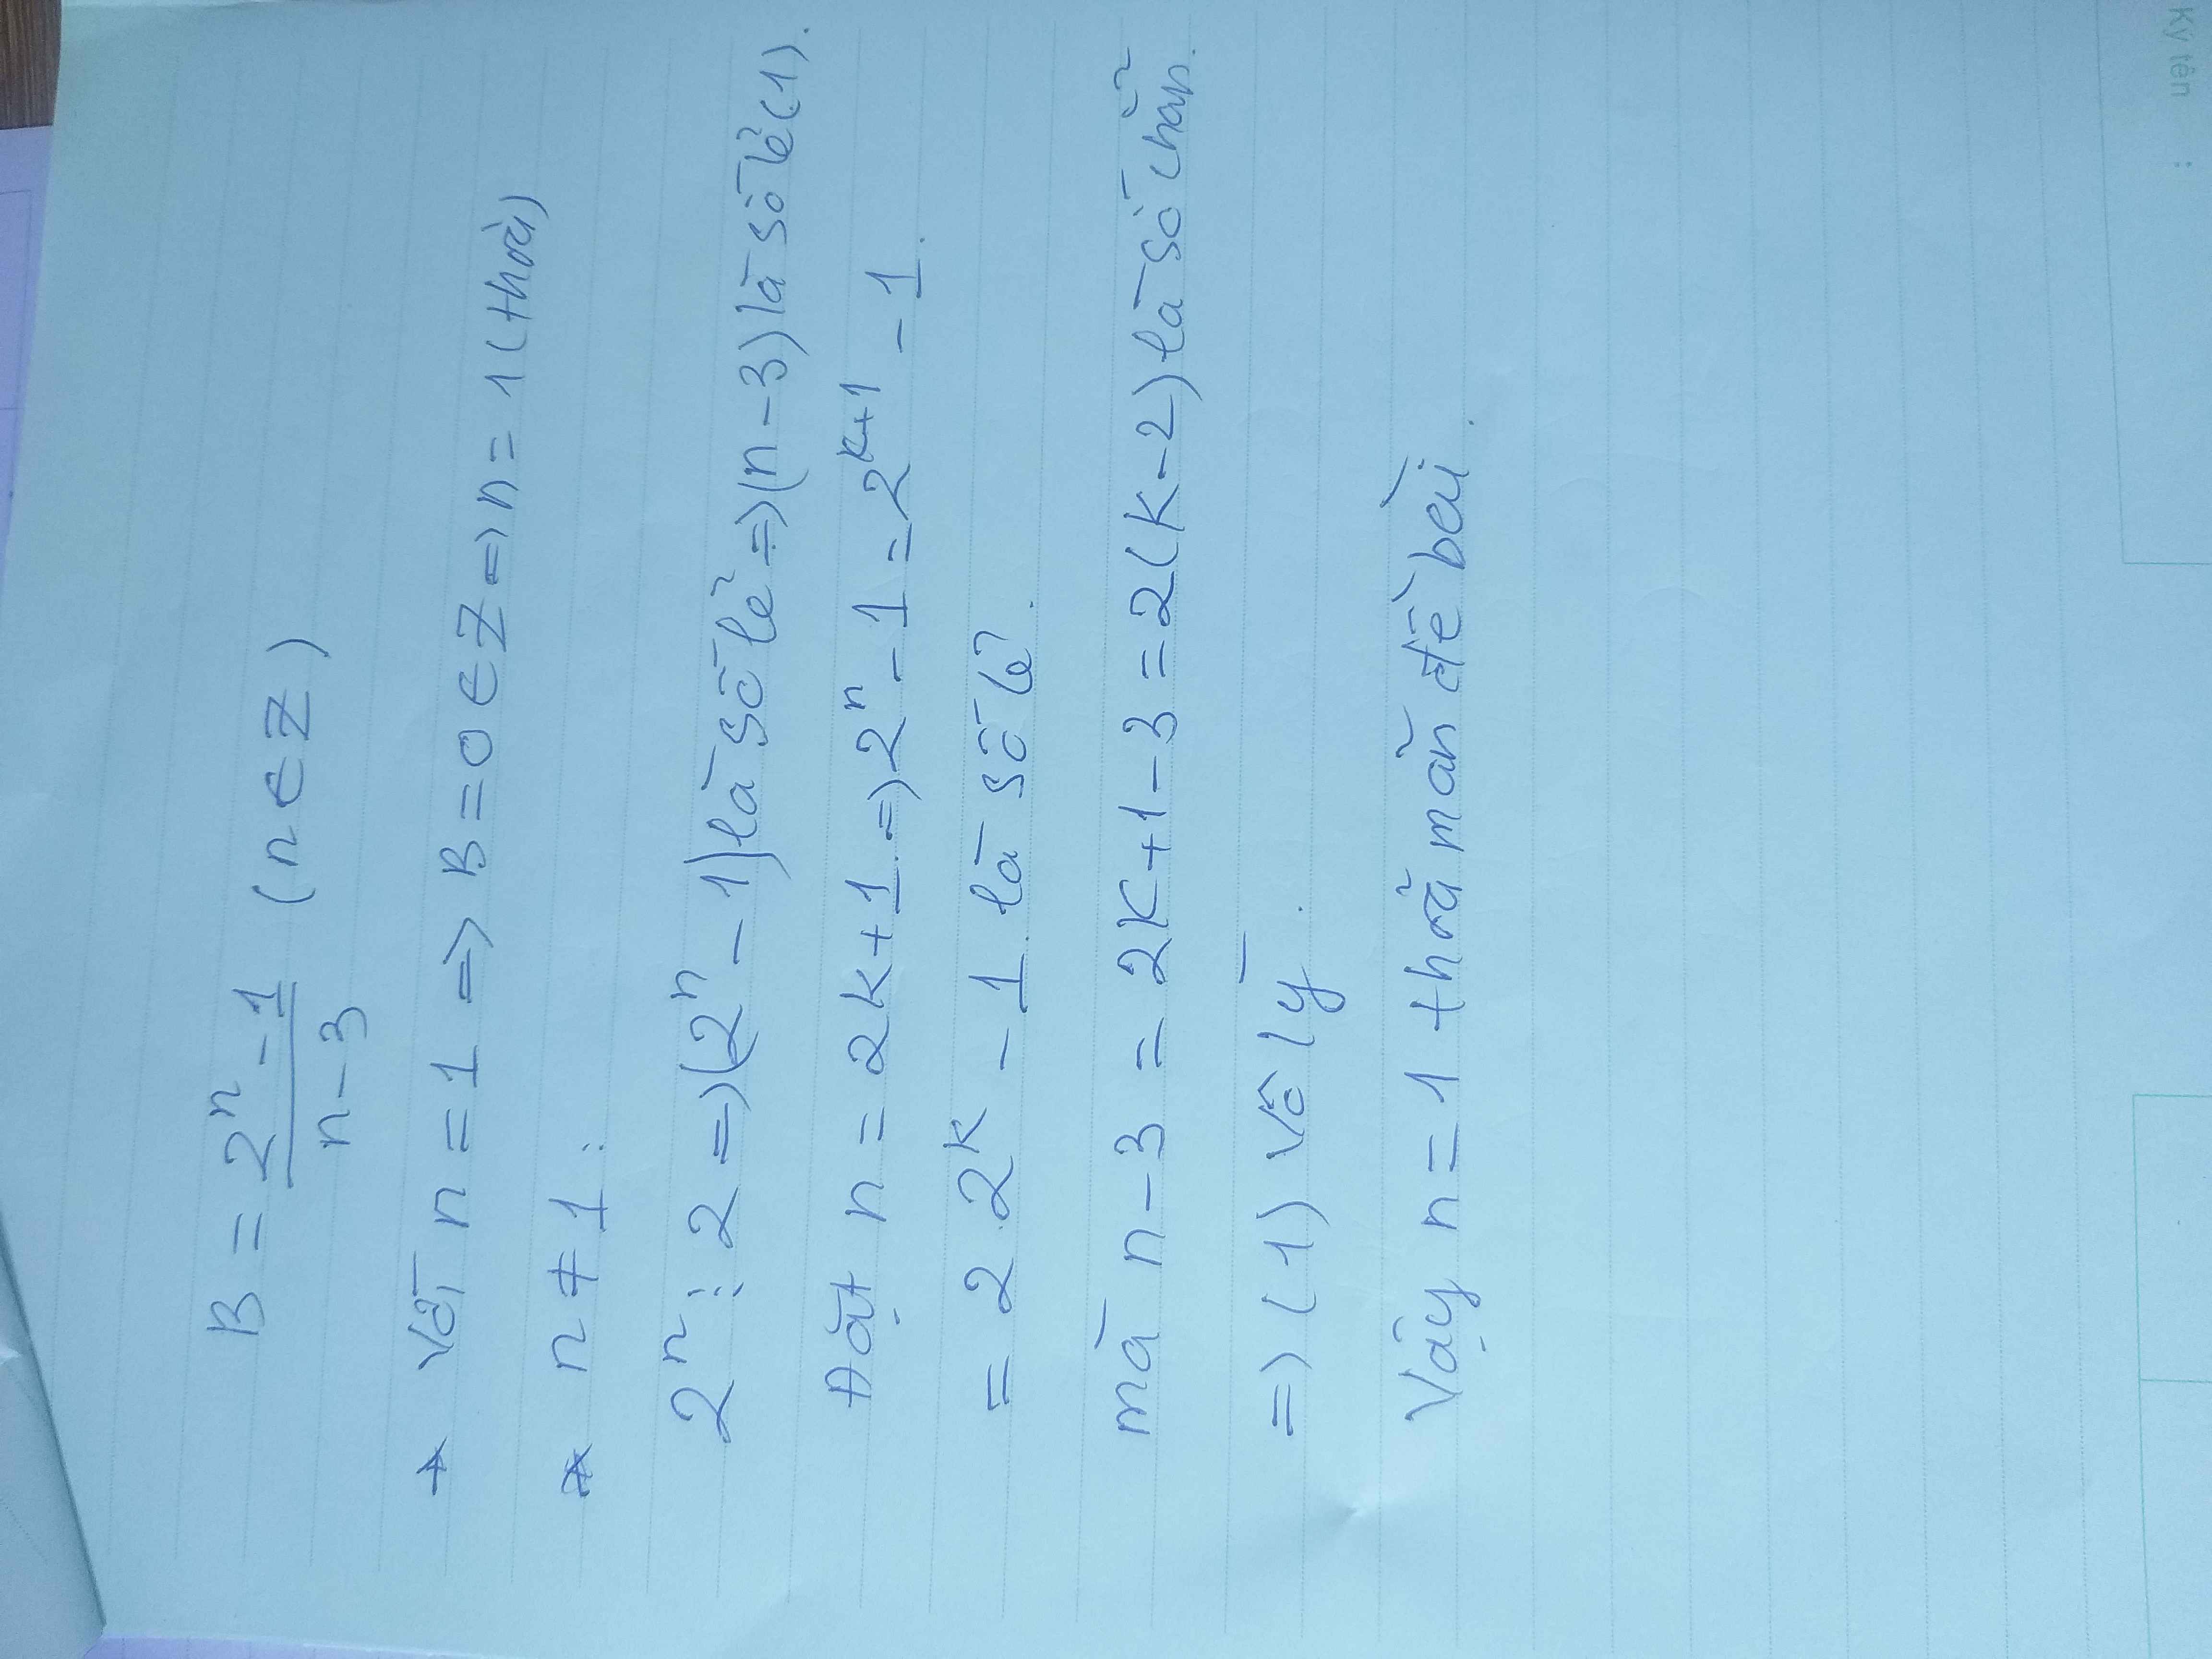 B = \frac{2^n - 1}{n - 3} (n ∈ Z)
* Với n = 1 => B = 0 ∈ Z => n = 1 (thỏa)
* n ≠ 1 :
2^n ⋮ 2 => (2^n - 1) là số lẻ => (n - 3) là số lẻ (1).
Đặt n = 2k + 1 => 2^n - 1 = 2^{k+1} - 1.
= 2.2^k - 1 là số lẻ.
mà n - 3 = 2k + 1 - 3 = 2(k - 2) là số chẵn.
=> (1) vô lý.
Vậy n = 1 thỏa mãn đề bài.
Ký tên :